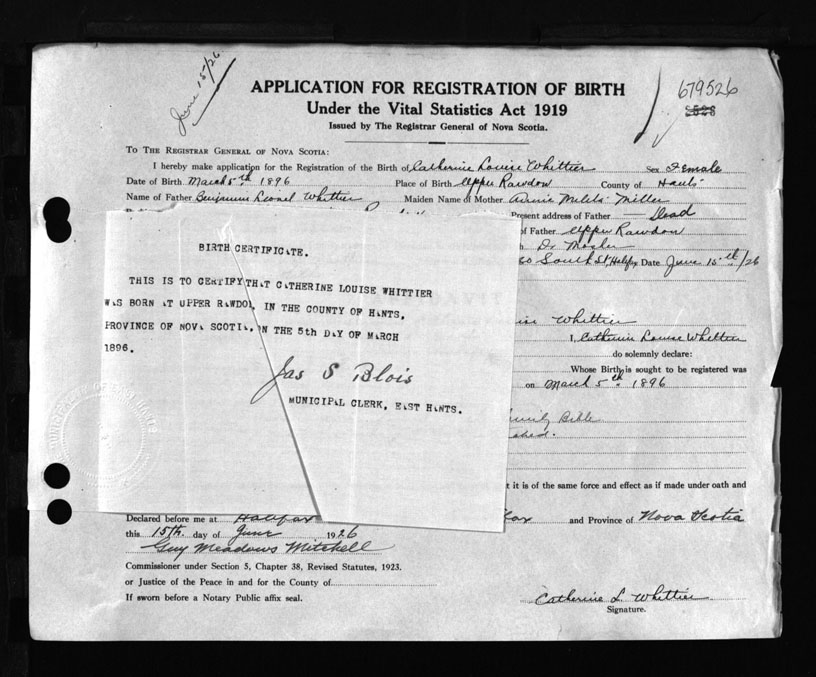 June 15/26.
APPLICATION FOR REGISTRATION OF BIRTH
679526
Under the Vital Statistics Act 1919
Issued by The Registrar General of Nova Scotia.
TO THE REGISTRAR GENERAL OF NOVA SCOTIA:
I hereby make application for the Registration of the Birth of Catherine Louise Whittier Sex Female
Date of Birth March 5th 1896 Place of Birth Upper Rawdon County of Hants
Name of Father Benjamin Leonel Whittier Maiden Name of Mother Annie Miller
Present address of Father — Dead
of Father Upper Rawdon
Dr Mosher
South St. Halifax Date June 15th/26
BIRTH CERTIFICATE.
THIS IS TO CERTIFY THAT CATHERINE LOUISE WHITTIER
WAS BORN AT UPPER RAWDO, IN THE COUNTY OF HANTS,
PROVINCE OF NOVA SCOTIA, ON THE 5th DAY OF MARCH
1896.
Jas S Blois
MUNICIPAL CLERK, EAST HANTS.
Whittier
I, Catherine Louise Whittier
do solemnly declare:
Whose Birth is sought to be registered was
on March 5th 1896
Family Bible
t it is of the same force and effect as if made under oath and
Declared before me at Halifax fax and Province of Nova Scotia
this 15th. day of June 1926
Guy Meadows Mitchell
Commissioner under Section 5, Chapter 38, Revised Statutes, 1923.
or Justice of the Peace in and for the County of
If sworn before a Notary Public affix seal.
Catherine L. Whittier
Signature.